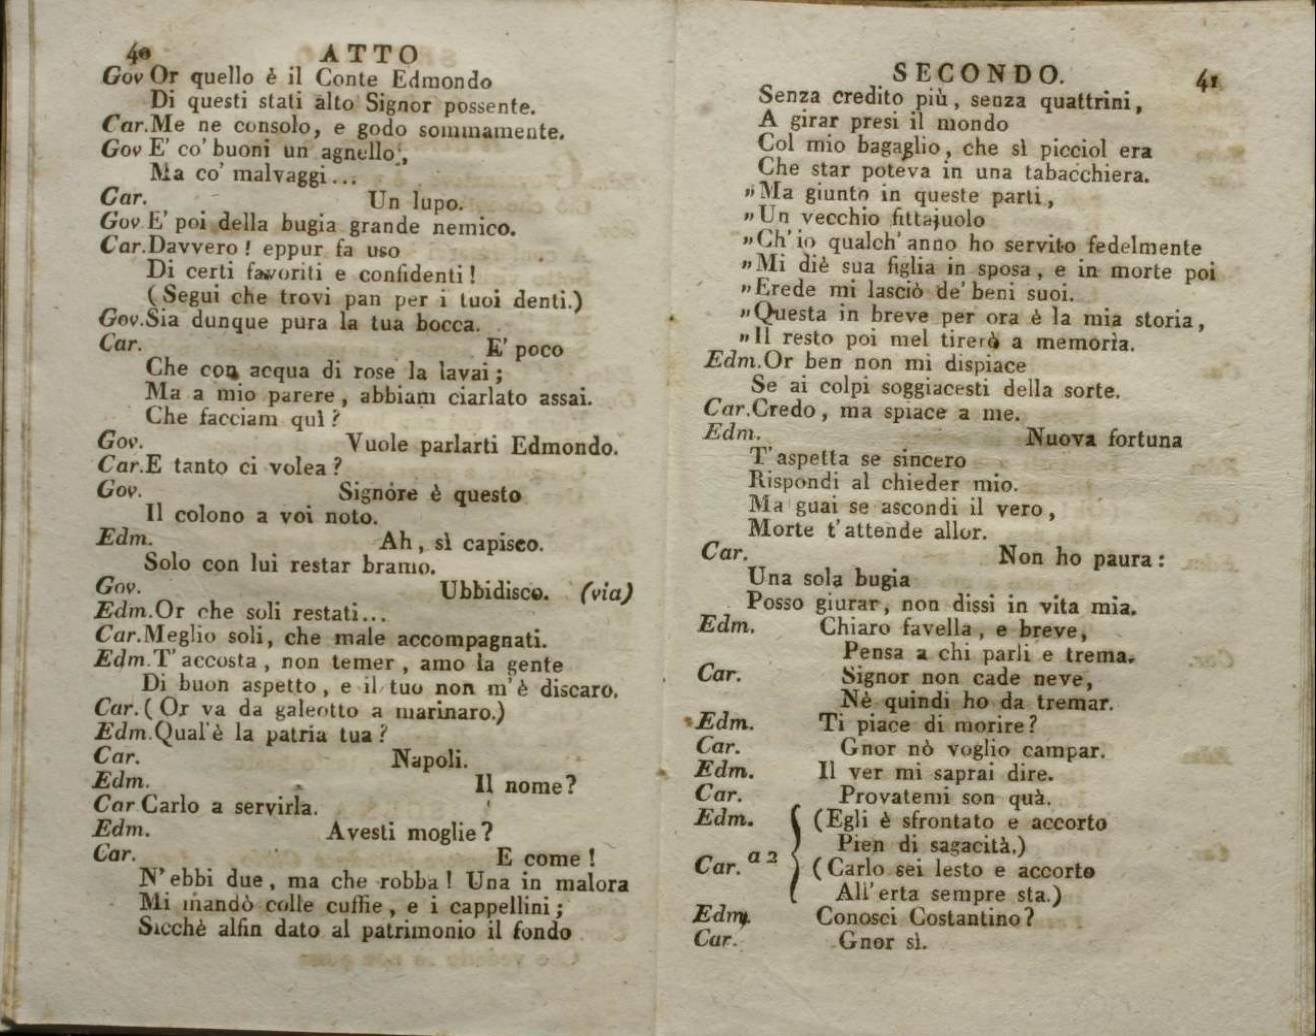 40 ATTO
Gov Or quello è il Conte Edmondo
Di questi stati alto Signor possente.
Car. Me ne consolo, e godo sommamente.
Gov E' co' buoni un agnello,
Ma co' malvaggi...
Car. Un lupo.
Gov E' poi della bugia grande nemico.
Car. Davvero! eppur fa uso
Di certi favoriti e confidenti!
(Segui che trovi pan per i tuoi denti.)
Gov. Sia dunque pura la tua bocca.
Car. E' poco
Che con acqua di rose la lavai;
Ma a mio parere, abbiam ciarlato assai.
Che facciam quì?
Gov. Vuole parlarti Edmondo.
Car. E tanto ci volea?
Gov. Signore è questo
Il colono a voi noto.
Edm. Ah, sì capisco.
Solo con lui restar bramo.
Gov. Ubbidisco. (via)
Edm. Or che soli restati...
Car. Meglio soli, che male accompagnati.
Edm. T' accosta, non temer, amo la gente
Di buon aspetto, e il tuo non m' è discaro.
Car. (Or va da galeotto a marinaro.)
Edm. Qual'è la patria tua?
Car. Napoli.
Edm. Il nome?
Car Carlo a servirla.
Edm. Avesti moglie?
Car. E come!
N' ebbi due, ma che robba! Una in malora
Mi mandò colle cuffie, e i cappellini;
Sicchè alfin dato al patrimonio il fondo
SECONDO. 41
Senza credito più, senza quattrini,
A girar presi il mondo
Col mio bagaglio, che sì picciol era
Che star poteva in una tabacchiera.
"Ma giunto in queste parti,
"Un vecchio fittajuolo
"Ch' io qualch' anno ho servito fedelmente
"Mi diè sua figlia in sposa, e in morte poi
"Erede mi lasciò de' beni suoi.
"Questa in breve per ora è la mia storia,
"Il resto poi mel tirerò a memorìa.
Edm. Or ben non mi dispiace
Se ai colpi soggiacesti della sorte.
Car. Credo, ma spiace a me.
Edm. Nuova fortuna
T' aspetta se sincero
Rispondi al chieder mio.
Ma guai se ascondi il vero,
Morte t' attende allor.
Car. Non ho paura:
Una sola bugia
Posso giurar, non dissi in vita mia.
Edm. Chiaro favella, e breve,
Pensa a chi parli e trema.
Car. Signor non cade neve,
Nè quindi ho da tremar.
Edm. Ti piace di morire?
Car. Gnor nò voglio campar.
Edm. Il ver mi saprai dire.
Car. Provatemi son quà.
Edm. (Egli è sfrontato e accorto
Pien di sagacità.)
Car. a 2 (Carlo sei lesto e accorto
All' erta sempre sta.)
Edm. Conosci Costantino?
Car. Gnor sì.